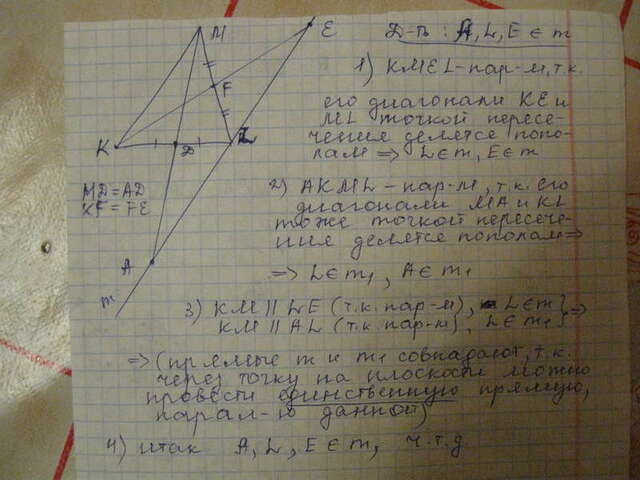 Д-ть: A, L, E ∈ m
1) KMEL - пар-м, т.к.
его диагонали KE и
ML точкой пересе-
чения делятся попо-
лам => L∈m, E∈m
2) AKML - пар-м, т.к. его
диагонали MA и KL
тоже точкой пересече-
ния делятся пополам =>
=> L∈m₁, A∈m₁
3) KM || LE (т.к. пар-м), L∈m } =>
KM || AL (т.к. пар-м), L∈m₁
=> (прямые m и m₁ совпадают, т.к.
через точку на плоскости можно
провести единственную прямую,
парал-ю данной)
4) итак A, L, E ∈ m, ч.т.д
MD = AD
KF = FE
K
M
D
F
L
E
A
m